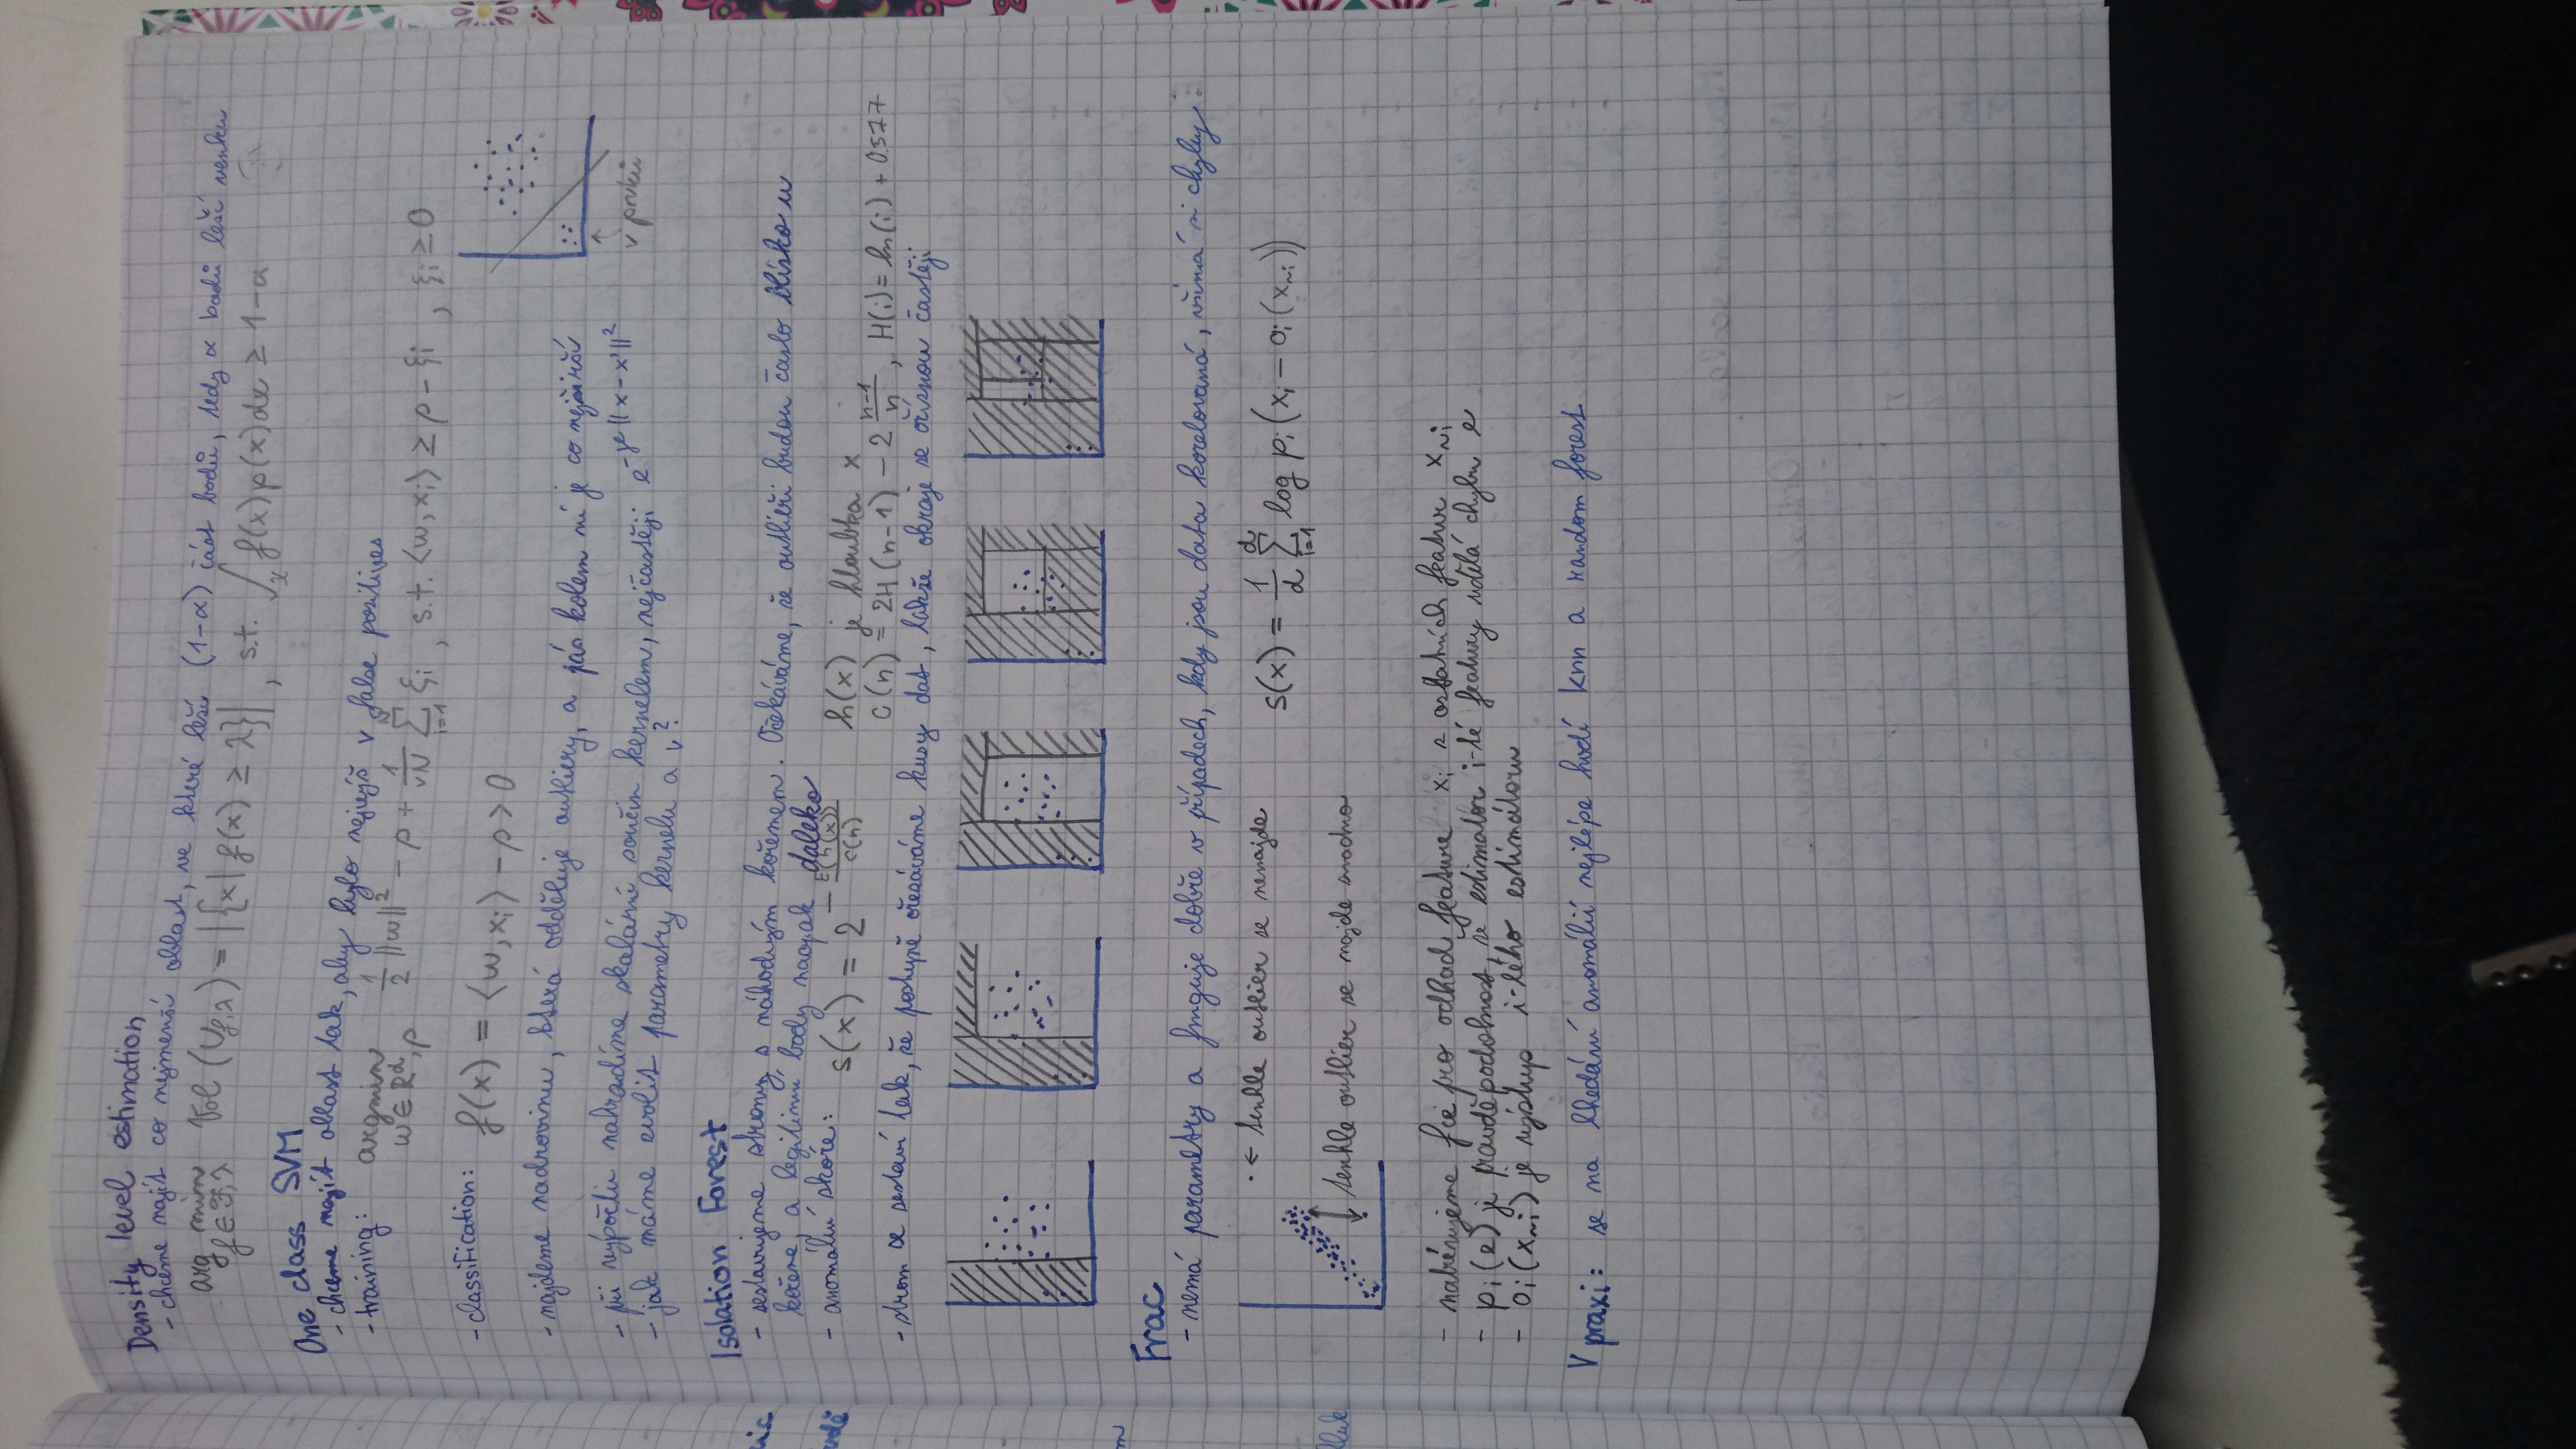 Density level estimation
- chceme najít co nejmenší oblast, ve které leží (1-α) část bodů, tedy α bodů leží venku
arg min f∈𝓕,λ Vol (U_{f,λ}) = |{x | f(x) ≥ λ}|, s.t. ∫_𝓧 f(x)p(x)dx ≥ 1-α
One class SVM
- chceme najít oblast tak, aby bylo nejvýš ν false positives
- training: argmin w∈ℝ^d, ρ 1/2 ||w||² - ρ + 1/νN Σ_{i=1}^N ξ_i, s.t. ⟨w, x_i⟩ ≥ ρ - ξ_i, ξ_i ≥ 0
- classification: f(x) = ⟨w, x_i⟩ - ρ > 0
- najdeme nadrovinu, která odděluje outliery, a pás kolem ní je co nejširší
- při výpočtu nahradíme skalární součin kernelem, nejčastěji e^{-γ ||x-x'||²}
- jak máme zvolit parametry kernelu a ν?
ν prvků
Isolation Forest
- sestavujeme stromy s náhodným kořenem. Očekáváme, že outlieři budou často blízko u
kořene, a legitimní body naopak daleko
- anomální skóre: s(x) = 2^{- E(h(x))/c(n)} h(x) je hloubka x
c(n) = 2H(n-1) - 2 n-1/n, H(i) = ln(i) + 0.577
- strom se sestaví tak, že postupně ořezáváme kusy dat, takže okraje se oříznou častěji
Frac
- nemá parametry a funguje dobře v případech, kdy jsou data korelovaná, všímá si chyby
← tenhle outlier se nenajde
s(x) = 1/d Σ_{i=1}^d log p_i (x_i - o_i (x_{~i}))
tenhle outlier se najde snadno
- natrénujeme fce pro odhad feature x_i z ostatních featur x_{~i}
- p_i(e) je pravděpodobnost, že estimátor i-té featury udělá chybu e
- o_i(x_{~i}) je výstup i-tého estimátoru
V praxi: se na hledání anomálií nejlépe hodí knn a random forest